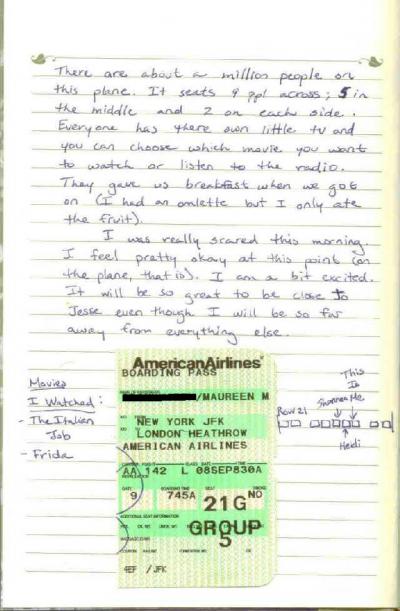 There are about a million people on
this plane. It seats 9 ppl across; 5 in
the middle and 2 on each side.
Everyone has there own little tv and
you can choose which movie you want
to watch or listen to the radio.
They gave us breakfast when we got
on (I had an omlette but I only ate
the fruit).
I was really scared this morning.
I feel pretty okay at this point (on
the plane, that is). I am a bit excited.
It will be so great to be close to
Jesse even though I will be so far
away from everything else.
Movies
I Watched:
- The Italian
Job
- Frida
AmericanAirlines
BOARDING PASS
/MAUREEN M
NEW YORK JFK
LONDON HEATHROW
AMERICAN AIRLINES
AA 142 L 08SEP830A
GATE BOARDING TIME SEAT SMOKE
9 745A 21G NO
ADDITIONAL SEAT INFORMATION
GROUP
5
4EF /JFK
This
Is
Me
Row 21
Heidi